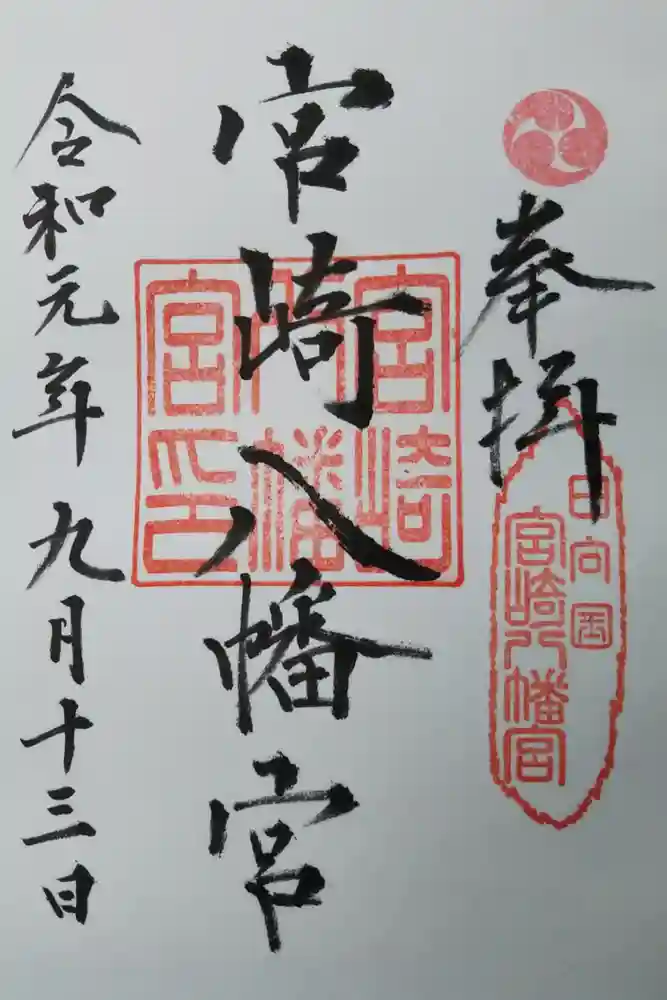 奉拝
日向国
宮崎八幡宮
宮崎八幡宮
宮崎
八幡
宮印
令和元年九月十三日